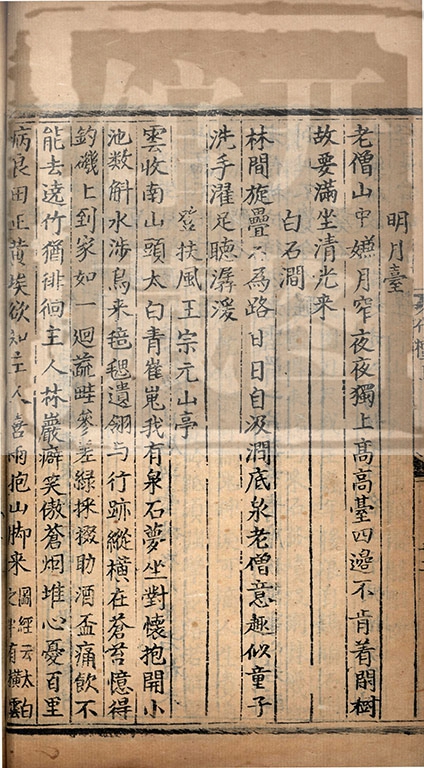 明月臺
老僧山中嫌月窄夜夜獨上髙高臺四邊不肯着閑樹
故要滿坐清光来
白石澗
林間旋疊石為路日日自汲澗底泉老僧意趣似童子
洗手濯足聽潺湲
登扶風王宗元山亭
雲收南山頭太白青崔嵬我有泉石夢坐對懷抱開小
池数斛水涉鳥来毰毸遺翎与行跡縱橫在蒼苔憶得
釣磯上到家如一迴蔬畦參差緑採掇助酒盃痛飲不
能去遠竹猶徘徊主人林巖癖笑傲蒼烟堆心憂百里
病良田正黄埃欲知主人喜雨抱山脚来圖經云太白
之半有橫雲